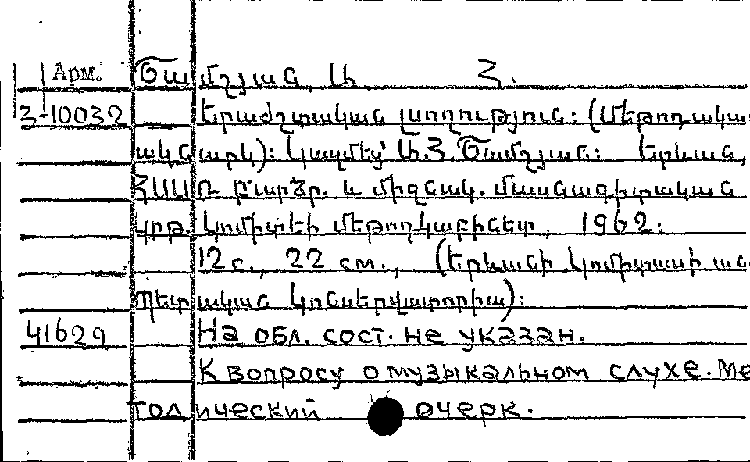 Арм. Ծամշյան, Ա. Հ.
3-10032 Երաժշտական լսողություն: (Մեթոդական
ակնարկ): Կազմեց՝ Ա.Հ. Ծամշյան: Երևան,
ՀՍՍՌ բարձր. և միջնակ. մասնագիտական
կրթ. կոմիտեի մեթոդկաբինետ, 1962:
12 с., 22 см., (Երևանի Կոմիտասի ան
պետական կոնսերվատորիա):
41629 На обл. сост. не указан.
К вопросу о музыкальном слухе. Ме
тодический очерк.